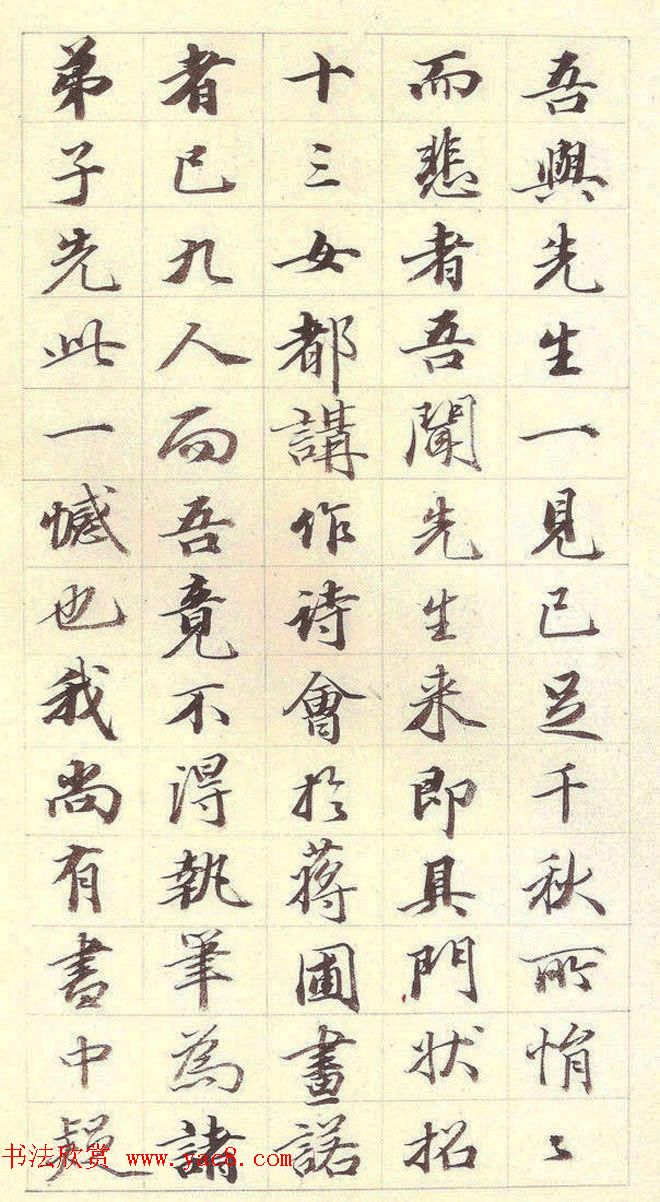 吾與先生一見已足千秋所悁〻
而悲者吾聞先生来即具門狀招
十三女都講作詩會於蔣園畫諾
者已九人而吾竟不得執筆為諸
弟子先此一憾也我尚有書中疑
书法欣赏 www.yac8.com